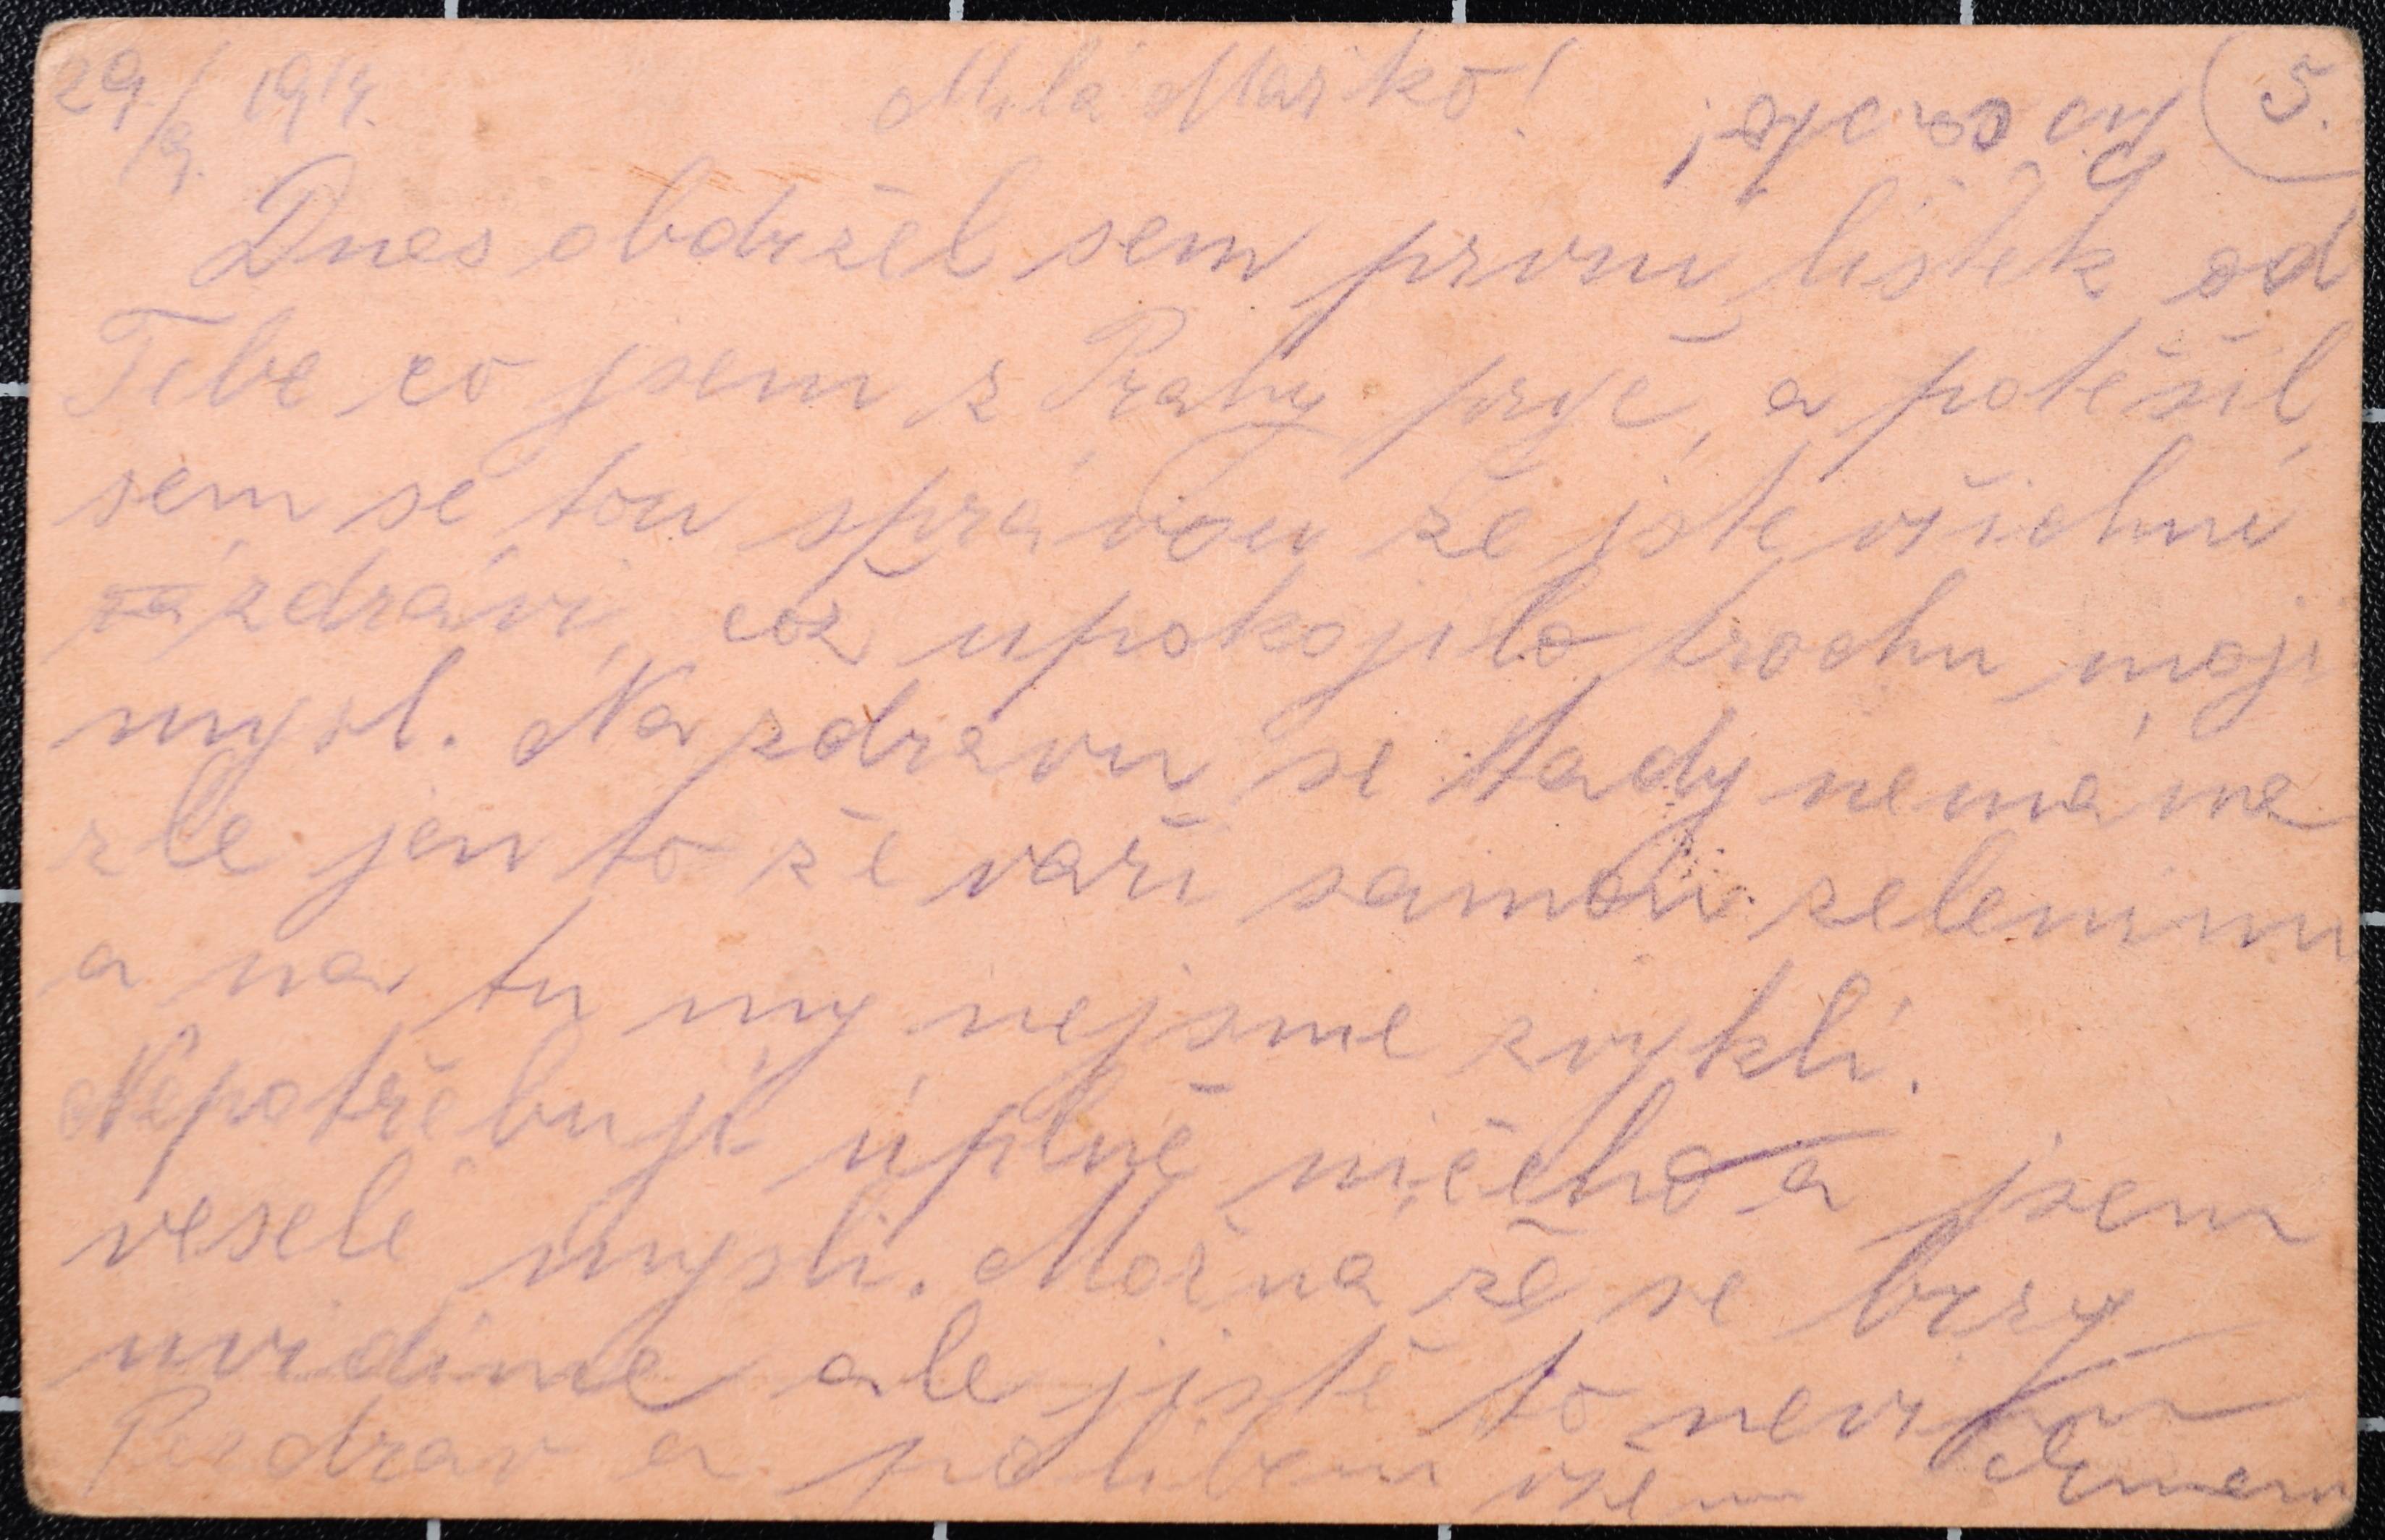 29./9. 1914.
Milá Mařko!
5.
Dnes obdržel sem první lístek od
Tebe co jsem z Prahy pryč, a potěšil
sem se tou správou že jste všichni
zdrávi, což upokojilo trochu moji
mysl. Na zdraví se tady nemáme
zle jen to že vaří samou zeleninu
a na tu my nejsme zvykli.
Nepotřebuji úplně ničeho a jsem
veselé mysli. Možná že se brzy
uvidíme ale jistě to nevím
Pozdrav a políbení všem